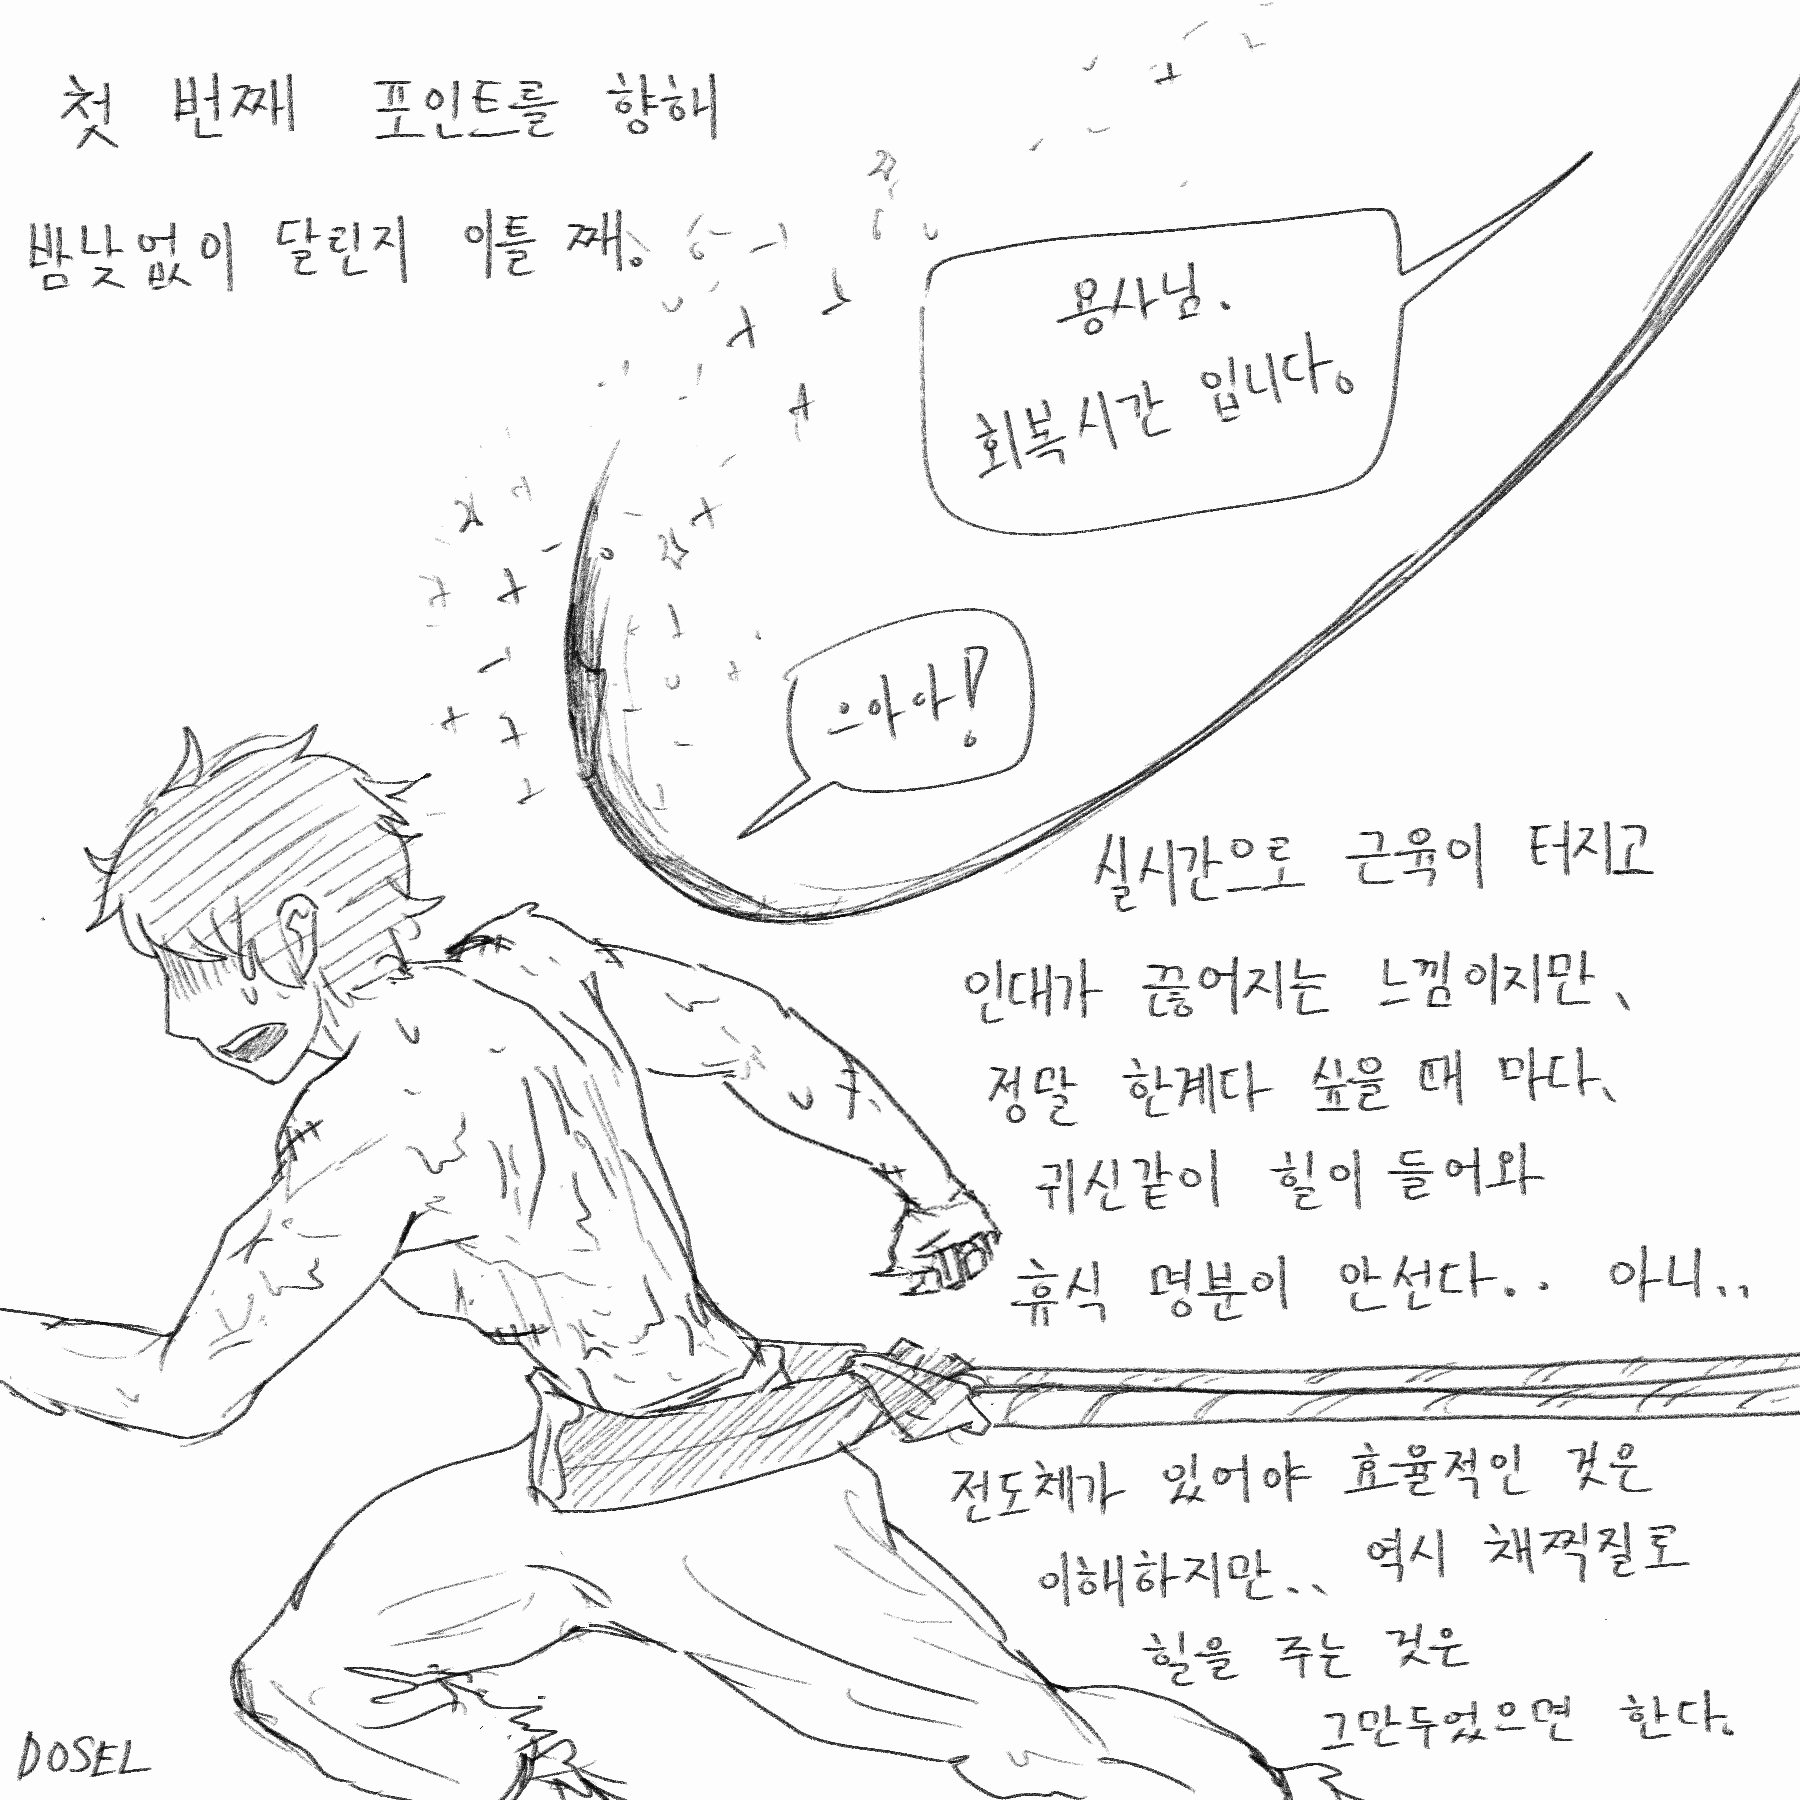 첫 번째 포인트를 향해
밤낮없이 달린지 이틀 째.
용사님.
회복시간 입니다.
으아아!
실시간으로 근육이 터지고
인대가 끊어지는 느낌이지만,
정말 한계다 싶을 때 마다,
귀신같이 힐이 들어와
휴식 명분이 안선다.. 아니..
전도체가 있어야 효율적인 것은
이해하지만.. 역시 채찍질로
힐을 주는 것은
그만두었으면 한다.
DOSEL